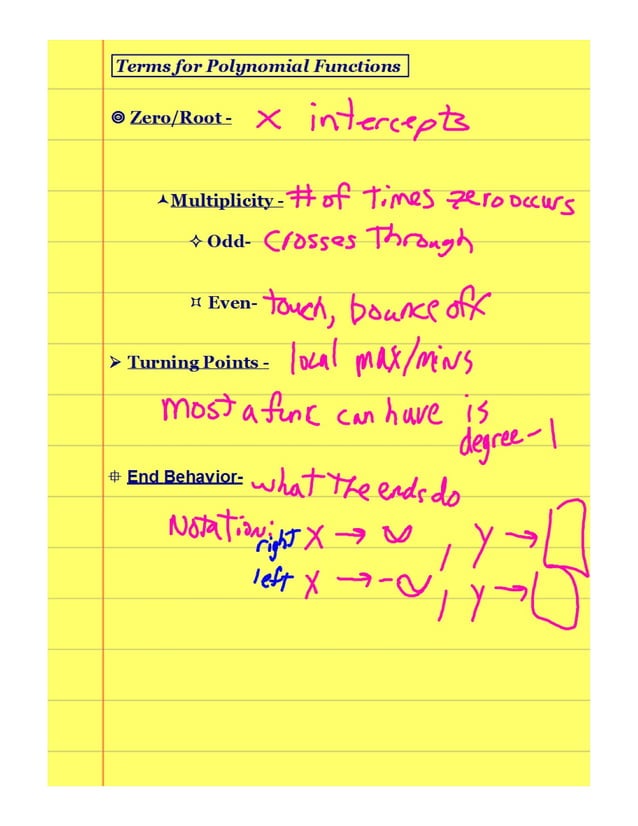 Terms for Polynomial Functions
Zero/Root - x intercepts
Multiplicity - # of times zero occurs
Odd- Crosses Through
Even- touch, bounce off
Turning Points - local max/mins
most a func can have is
degree-1
End Behavior- what the ends do
Notation:
right x → ∞, y → □
left x → -∞, y → □